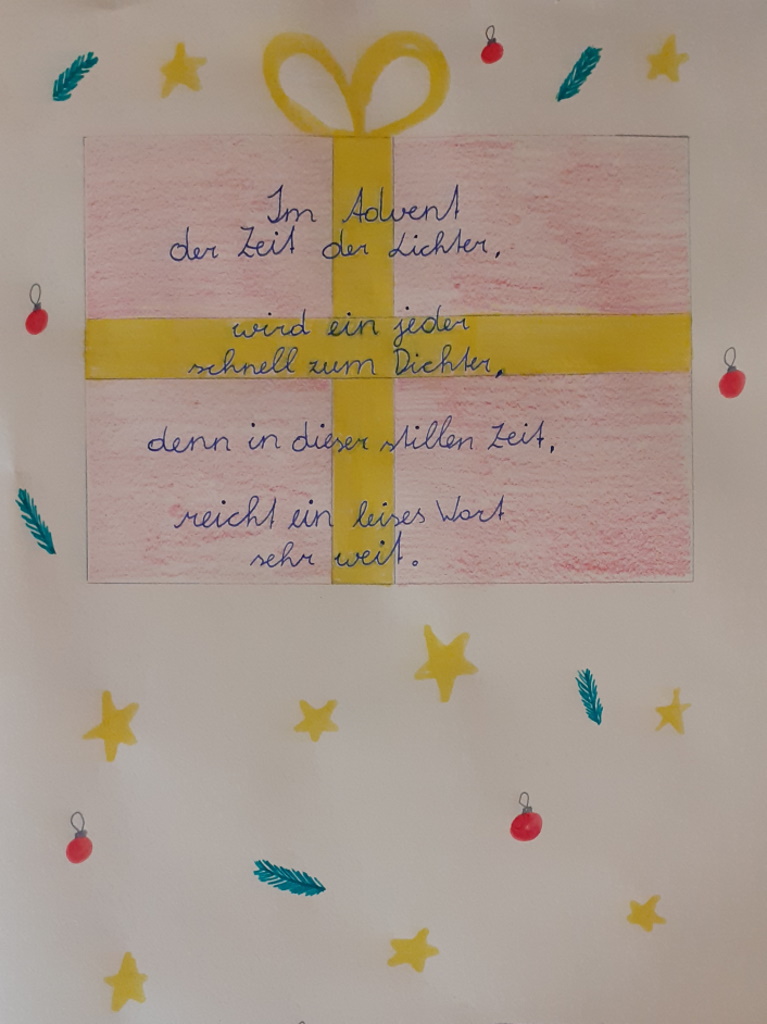 Im Advent
der Zeit der Lichter,
wird ein jeder
schnell zum Dichter,
denn in dieser stillen Zeit,
reicht ein leises Wort
sehr weit.